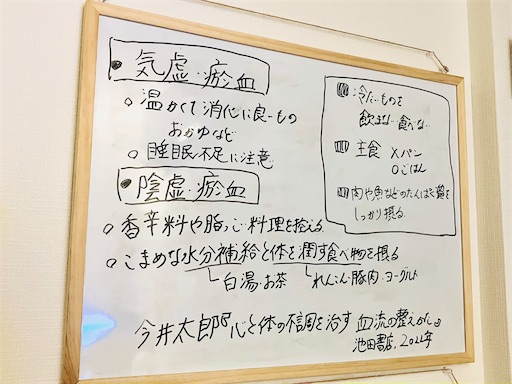 • 気虚・瘀血
○ 温かくて消化に良いもの
おかゆなど
○ 睡眠不足に注意
• 陰虚・瘀血
○ 香辛料や脂っこい料理を控える
○ こまめな水分補給と体を潤す食べ物を摂る
白湯・お茶
れんこん・豚肉・ヨーグルト
冷たいものを
飲まない・食べない
主食 ×パン
○ごはん
肉や魚などのたんぱく質を
しっかり摂る
今井太郎『心と体の不調を治す 血流の整えかた』
池田書店, 2022年